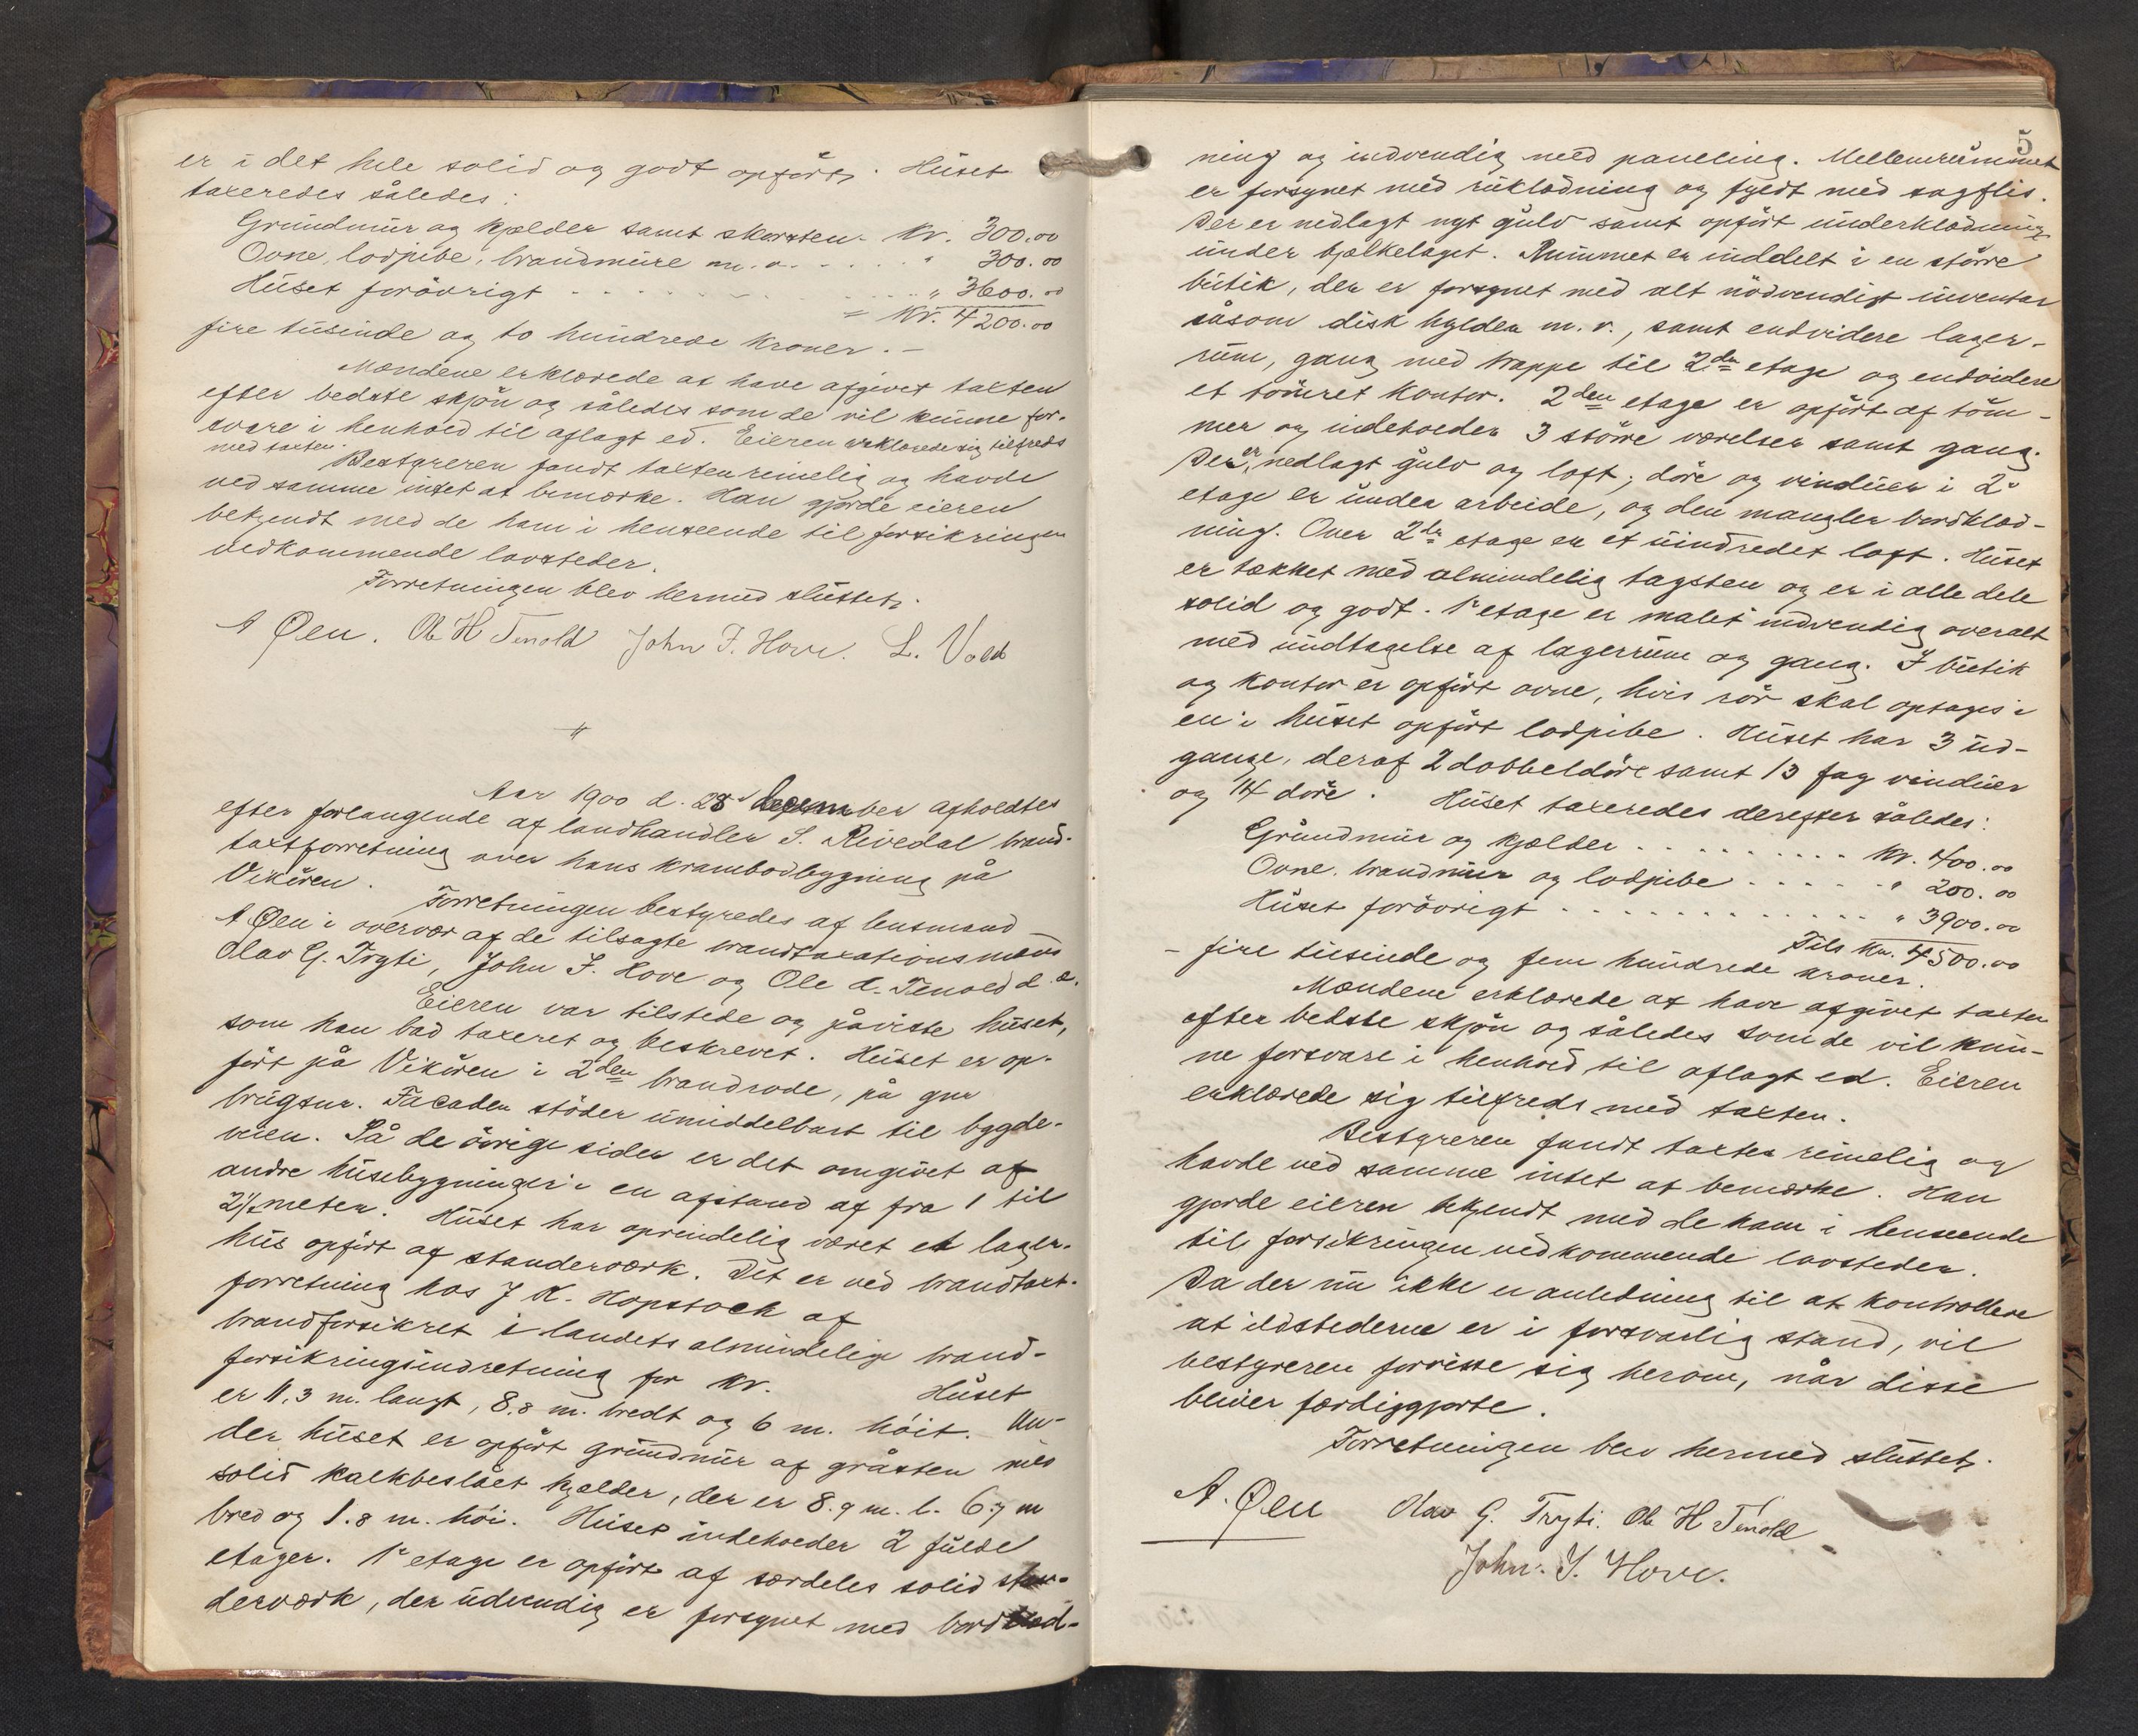 er i det hele solid og godt opført. Huset
taxeredes således:
Grundmur og kjelder samt skorsten - Kr. 300.00
Ovne, lodpibe, brandmure m.v. - - - - " 300.00
Huset forøvrigt - - - - - - - - - - " 3600.00
= Kr. 4200.00
fire tusinde og to hundrede Kroner. -
Mændene erklærede at have afgivet taxten
efter bedste skjøn og således som de vil kunne for-
svare i henhold til aflagt ed. Eieren erklærede sig tilfreds
med taxten.
Bestyreren fandt taxten rimelig og havde
ved samme intet at bemærke. Han gjorde eieren
bekjendt med de ham i henseende til forsikringen
vedkommende lovsteder.
Forretningen blev hermed sluttet.
A Øen. Ole H Tenold John I. Hove. L. Vold
Aar 1900 d. 28d December afholdtes
efter forlangende af landhandler S. Rivedal brand-
taxtforretning over hans krambodbygning på
Vikøren. Forretningen bestyredes af lensmand
A Øen i overvær af de tilsagte brandtaxationsmænd
Olav G. Tryti, John I. Hove og Ole H. Tenold d. æ.
Eieren var tilstede og påviste huset,
som han bad taxeret og beskrevet. Huset er op-
ført på Vikøren i 2den brandrode, på gnr
brugsnr. Facaden støder umiddelbart til bygde-
veien. På de øvrige sider er det omgivet af
andre husebygninger i en afstand af fra 1 til
2½ meter. Huset har oprindelig været et lager-
hus opført af standerværk. Det er ved brandtaxt-
forretning hos J K. Hopstock af
brandforsikret i landets almindelige brand-
forsikringsindretning for Kr. Huset
er 11.3 m. langt, 8.8 m. bredt og 6 m. høit. Un-
der huset er opført grundmur af gråsten med
solid kalkbeslået kjelder, der er 8.9 m. l. 6.7 m
bred og 1.8 m. høi. Huset indeholder 2 fulde
etager. 1e etage er opført af særdeles solid stan-
derværk, der udvendig er forsynet med bordklæd-
5
ning og indvendig med paneling. Mellemrummet
er forsynet med ruklædning og fyldt med sagflis.
Der er nedlagt nyt gulv samt opført underklædning
under bjelkelaget. Rummet er inddelt i en større
butik, der er forsynet med alt nødvendigt inventar
såsom disk hylder m.v., samt endvidere lager-
rum, gang med trappe til 2den etage og endvidere
et tømret Kontor. 2den etage er opført af tøm-
mer og indeholder 3 større værelser samt gang.
Der er nedlagt gulv og loft; døre og vinduer i 2e
etage er under arbeide, og den mangler bordklæd-
ning. Over 2den etage er et uindredet loft. Huset
er tækket med almindelig tagsten og er i alle dele
solid og godt. 1e etage er malet indvendig overalt
med undtagelse af lagerrum og gang. I butik
og Kontor er opført ovne, hvis rør skal optages i
en i huset opført lodpibe. Huset har 3 ud-
gange, deraf 2 dobbeldøre samt 13 fag vinduer
og 14 døre. Huset taxeredes derefter således:
Grundmur og kjelder - - - - - - - - - Kr. 400.00
Ovne, brandmur og lodpibe - - - - - - " 200.00
Huset forøvrigt - - - - - - - - - - - - " 3900.00
Tils Kr. 4500.00
- fire tusinde og fem hundrede kroner.
Mændene erklærede at have afgivet taxten
efter bedste skjøn og således som de vil kun-
ne forsvare i henhold til aflagt ed. Eieren
erklærede sig tilfreds med taxten.
Bestyreren fandt taxten rimelig og
havde ved samme intet at bemærke. Han
gjorde eieren bekjendt med de ham i henseende
til forsikringen vedkommende lovsteder.
Da der nu ikke er anledning til at kontrollere
at ildstederne er i forsvarlig stand, vil
bestyreren forvisse sig herom, når disse
bliver færdiggjorte.
Forretningen blev hermed sluttet.
A. Øen Olav G. Tryti. Ole H Tenold
John. I. Hove.